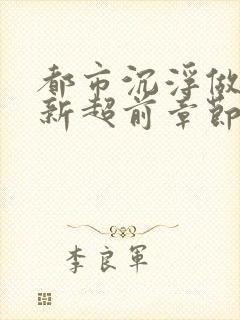 都市沉浮做
新超前章節
李良軍